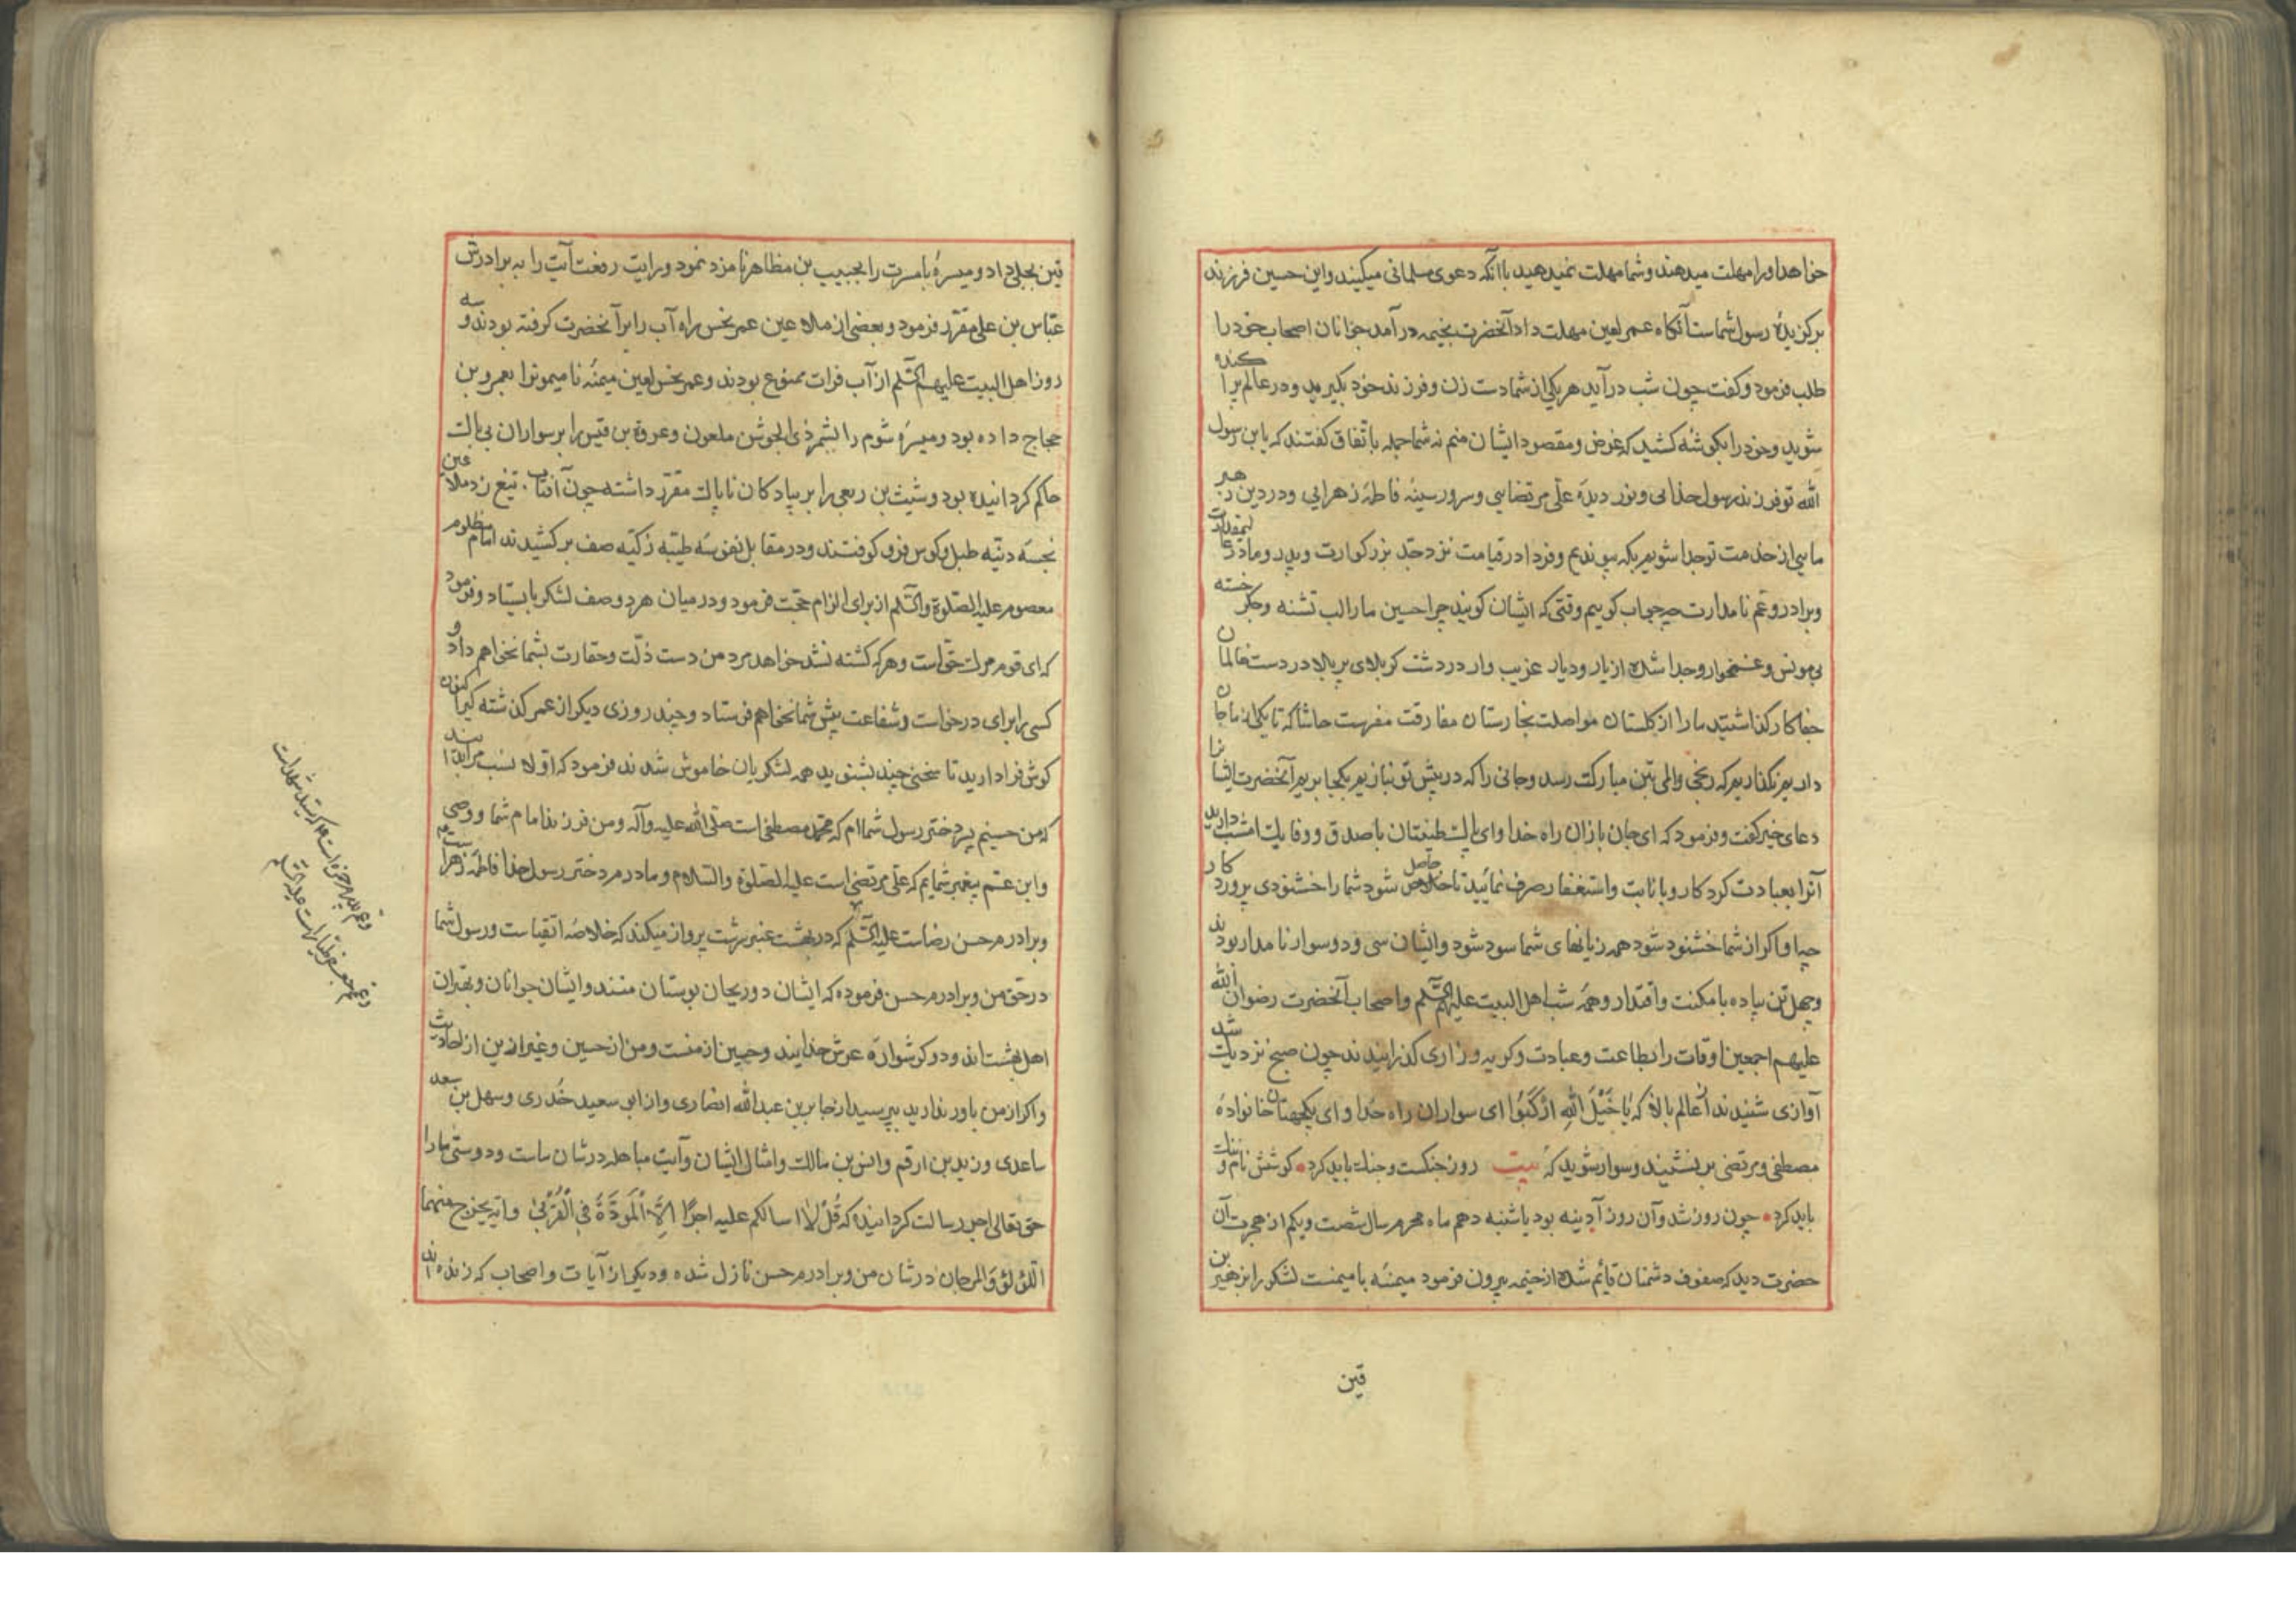 خواهد او را مهلت میدهند و شما مهلت نمیدهید با آنکه دعوی مسلمانی میکنید و این حسین فرزند
برکزیدهٔ رسول شماست آنکاه عمر لعین مهلت داد آنحضرت بخیمه درآمد جوانان اصحاب خود را
طلب فرمود و کفت چون شب درآید هر یکی از شما دست زن و فرزند خود بکیرید و در عالم پراکنده
شوید و خود را بکوشهٔ کشید که غرض و مقصود ایشان منم نه شما جمله باتفاق کفتند که یا بن رسول
الله تو فرزند رسول خدایی و نور دیدهٔ علی مرتضایی و سرور سینهٔ فاطمهٔ زهرایی و در دین رهبر
مایی از خدمت تو جدا شویم بکه پیوندیم و فردا در قیامت نزد جد بزرکوارت و پدر و مادر
و برادر و عم نامدارت چه جواب کوییم وقتی که ایشان کویند چرا حسین ما را لب تشنه و جکر خسته
بی مونس و غمخوار و جدا شده از یار و دیار غریب وار در دشت کربلای پر بلا در دست ظالمان
جفاکار کذاشتید ما را از کلستان مواصلت بخارستان مفارقت مفرست حاشا که تا یکی از ما جان
داریم نکذاریم که رنجی و المی بتن مبارکت رسد و جانی را که در پیش تو نبازیم بکجا بریم آنحضرت ایشانرا
دعای خیر کفت و فرمود که ای جان بازان راه خدا و ای پاک طینتان با صدق و وفا یک امشب دارید
آنرا بعبادت کردکار و بانابت و استغفار صرف نمائید تا خلاص حاصل شود شما را خشنودی پروردکار
چرا و اکر از شما خشنود شود همه زیانهای شما سود شود و ایشان سی و دو سوار نامدار بودند
و چهل تن پیاده با مکنت و اقتدار و همهٔ شب اهل البیت علیهم السلم و اصحاب آنحضرت رضوان الله
علیهم اجمعین اوقات را بطاعت و عبادت و کریه و زاری کذرانیدند چون صبح نزدیک شد
آوازی شنیدند از عالم بالا که یَا خَیْلَ اللهِ ارْکَبُوا ای سواران راه خدا و ای یکجهتان خانوادهٔ
مصطفی و مرتضی بر نشینید و سوار شوید که بیت روز جنکست و جنک باید کرد کوشش نام و ننک
باید کرد چون روز شد و آن روز آدینه بود یا شنبه دهم ماه محرم سال شصت و یکم از هجرت آن
حضرت دید که صفوف دشمنان قائم شده از خیمه بیرون فرمود میمنهٔ با میمنت لشکر را بزهیر بن
قین
قین بجلی داد و میسرهٔ با مسرت را بحبیب بن مظاهر نامزد نمود و رایت رفعت آیت را به برادرش
عباس بن علی مقرر فرمود و بعضی از ملاعین عمر نحس راه آب را بر آنحضرت کرفته بودند و سه
روز اهل البیت علیهم السلم از آب فرات ممنوع بودند و عمر نحس لعین میمنهٔ نامیمونرا بعمرو بن
حجاج داده بود و میسرهٔ شوم را بشمر ذی الجوشن ملعون و عروة بن قیس را بر سواران بی باک
حاکم کردانیده بود و شیث بن ربعی را بر پیادکان ناپاک مقرر داشته چون آفتاب تیغ زد ملاعین
نجسهٔ دنیه طبل و کوس فرو کوفتند و در مقابل نفوسهٔ طیبه زکیه صف بر کشیدند امام مظلوم
معصوم علیه الصلوة والسلم از برای الزام حجت فرمود و در میان هر دو صف لشکر بایستاد و فرمود
که ای قوم مرک حق است و هر که کشته نشد خواهد مرد من دست ذلت و حقارت بشما نخواهم داد و
کسی را برای درخواست و شفاعت پیش شما نخواهم فرستاد و چند روزی دیکر از عمر کذشته کیر اکنون
کوش فرا دارید تا سخنی چند بشنوید همه لشکریان خاموش شدند فرمود که اولا نسب مرا بدانید
که من حسینم پسر دختر رسول شما ام که محمد مصطفی است صلی الله علیه وآله و من فرزند امام شما و وصی
و ابن عم پیغمبر شمایم که علی مرتضی است علیه الصلوة والسلام و مادرم دختر رسول خدا فاطمهٔ زهرا ست
و برادرم حسن رضاست علیه السلم که در بهشت عنبر سرشت پرواز میکند که خلاصهٔ اتقیاست و رسول شما
در حق من و برادرم حسن فرموده که ایشان دو ریحان بوستان منند و ایشان جوانان و بهتران
اهل بهشت اند و دو کوشوارهٔ عرش خدایند و حسین از منست و من از حسین و غیر ازین از احادیث
و اکر از من باور ندارید بپرسید از جابر بن عبدالله انصاری و از ابو سعید خدری و سهل بن سعد
ساعدی و زید بن ارقم و انس بن مالک و امثال ایشان و آیت مباهله در شان ماست و دوستی ما را
حق تعالی اجر رسالت کردانیده که قُلْ لا اسالکم علیه اجرًا اِلَّا الْمَوَدَّةَ فِی الْقُرْبیٰ و آیه یخرج منهما
اللؤلؤ والمرجان در شان من و برادرم حسن نازل شده و دیکر از آیات و اصحاب که زنده اند
و عم پدرم حمزه است که سید شهداست
و عمم جعفر طیار است علیه السلم